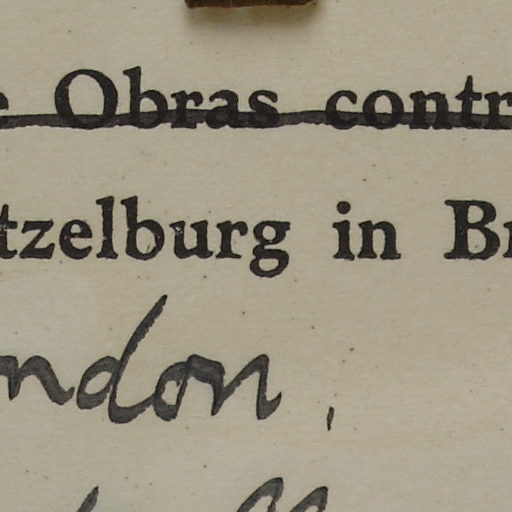 e Obras contr
tzelburg in Br
ndon,